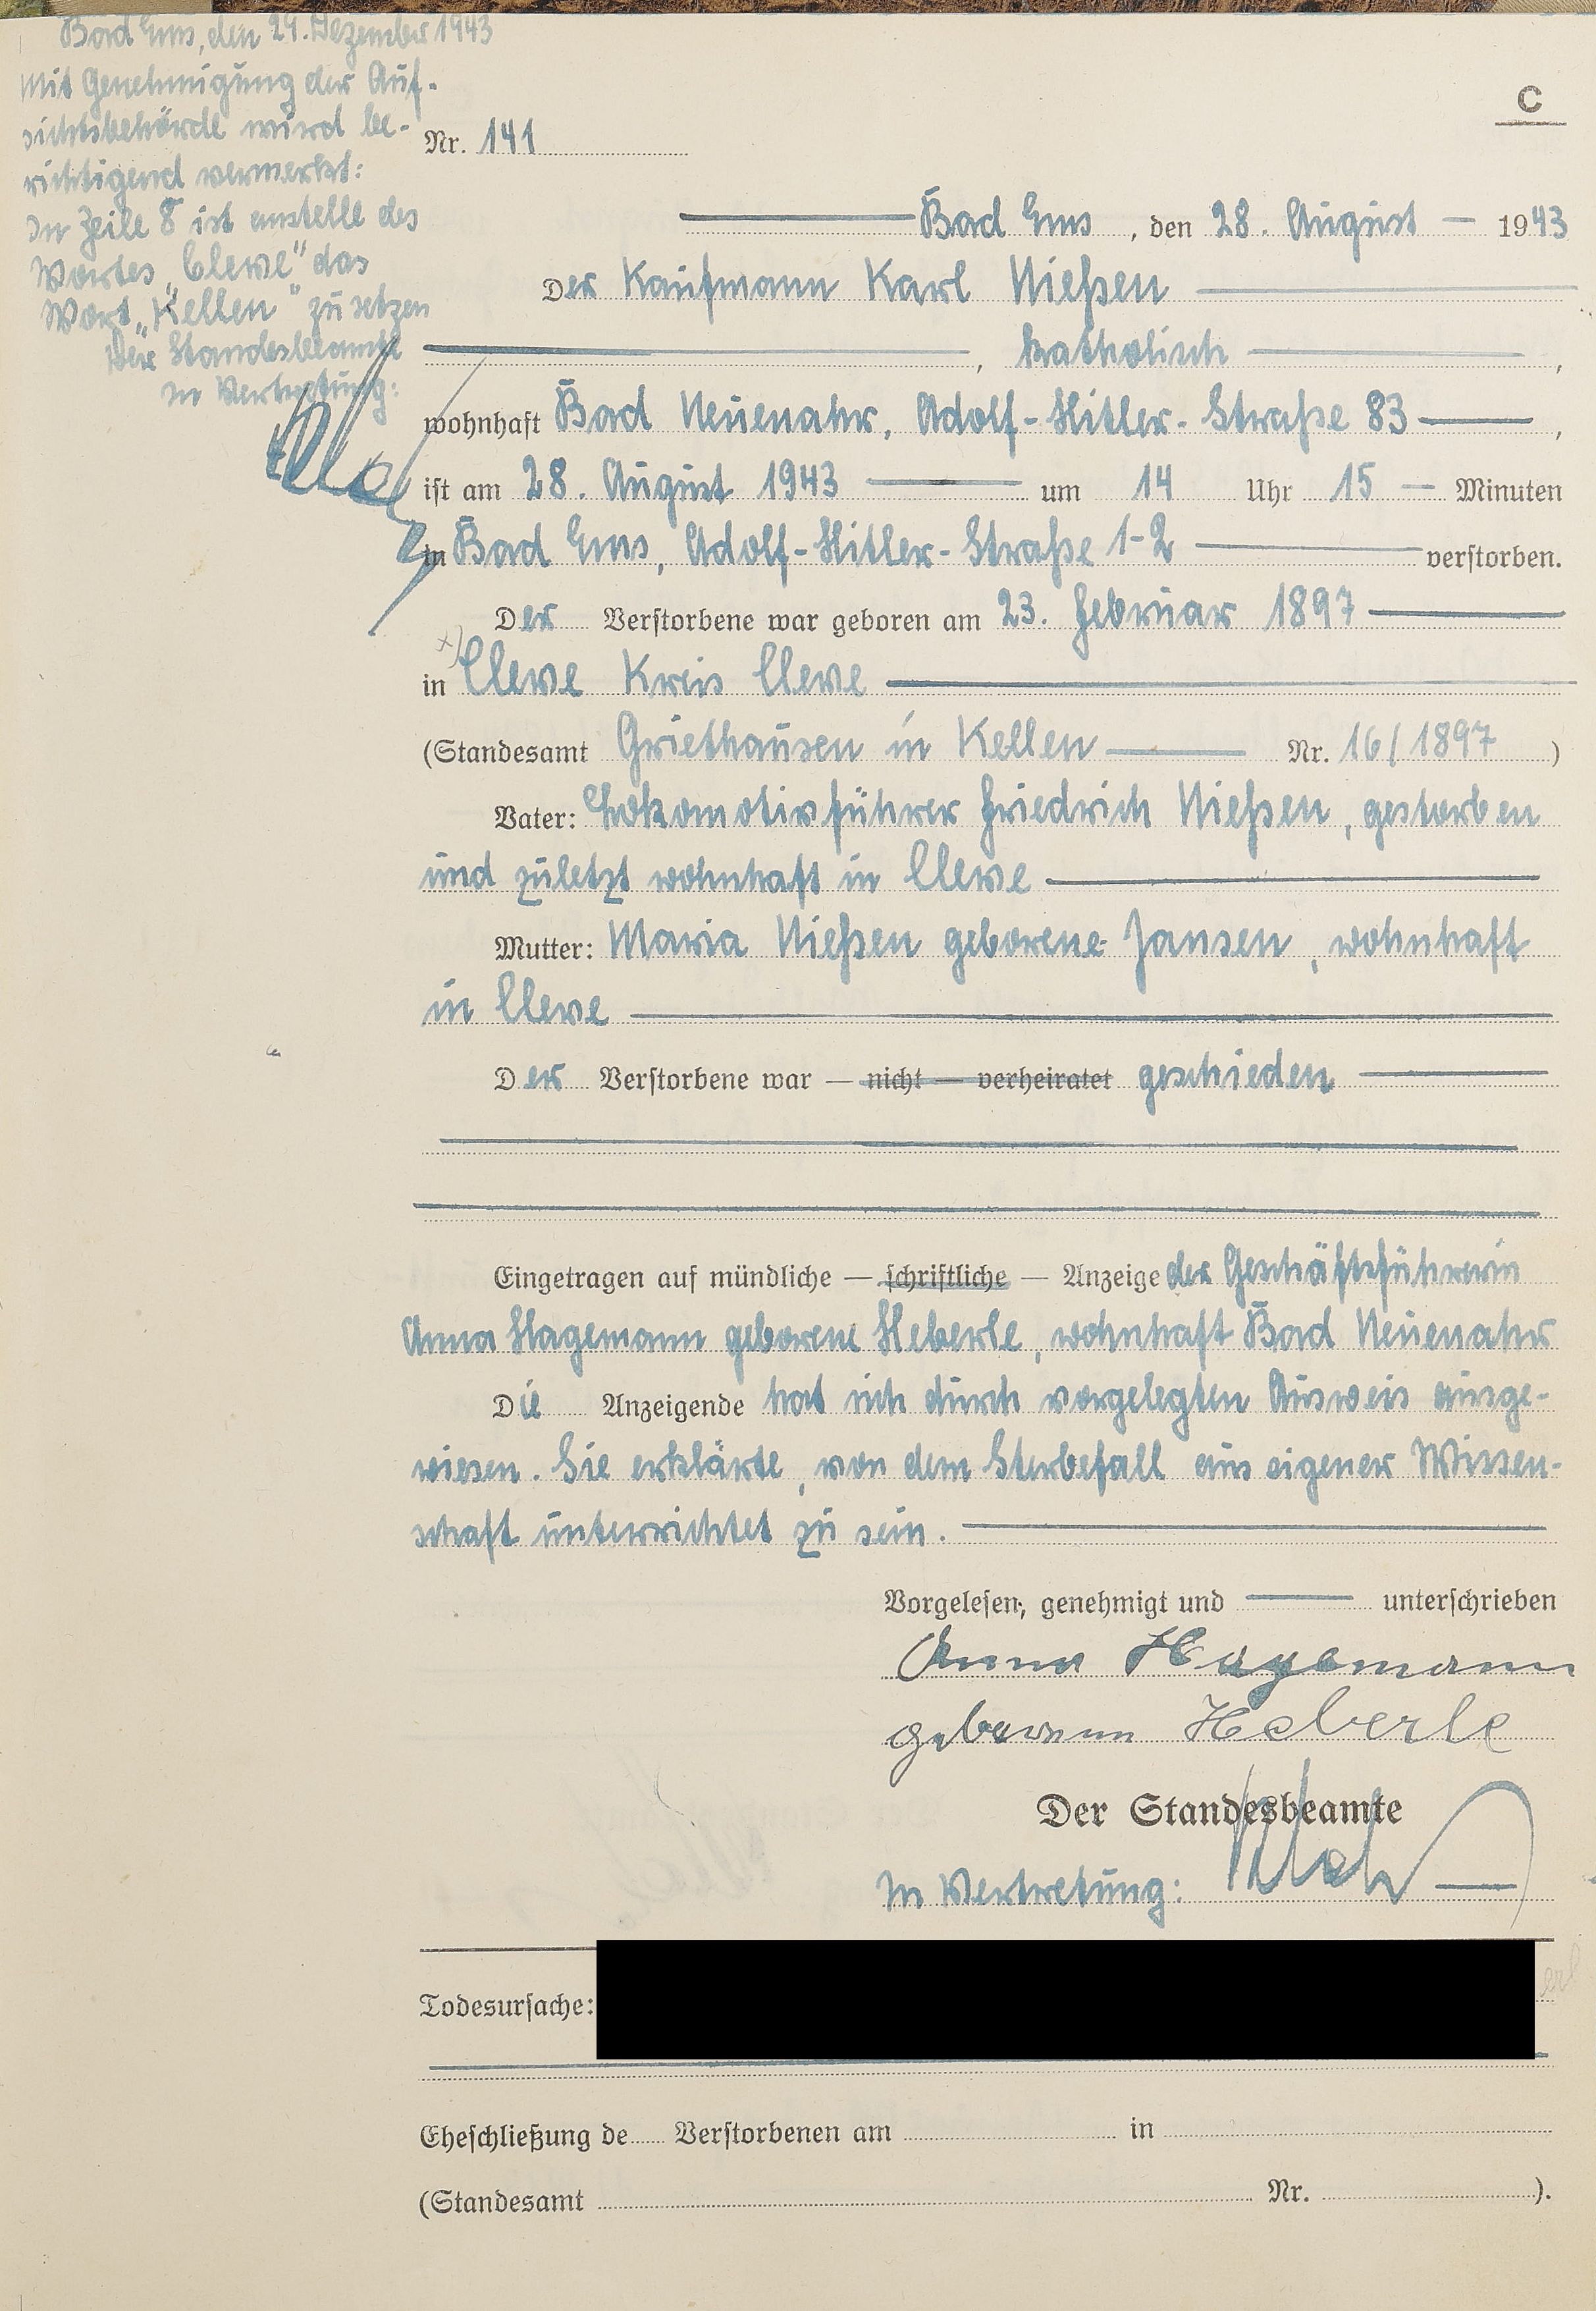 Bad Ems, den 29. Dezember 1943
Mit Genehmigung der Auf-
sichtsbehörde wird be-
richtigend vermerkt:
In Zeile 8 ist anstelle des
Wortes „Cleve" das
Wort „Kellen" zu setzen
Der Standesbeamte
In Vertretung:
C
Nr. 141
Bad Ems, den 28. August 1943
Der Kaufmann Karl Nießen
, katholisch ,
wohnhaft Bad Neuenahr, Adolf-Hitler-Straße 83 ,
ist am 28. August 1943 um 14 Uhr 15 Minuten
in Bad Ems, Adolf-Hitler-Straße 1-2 verstorben.
Der Verstorbene war geboren am 23. Februar 1897
x)
in Cleve Kreis Cleve
(Standesamt Griethausen in Kellen Nr. 16/1897 )
Vater: Lokomotivführer Friedrich Nießen, gestorben
und zuletzt wohnhaft in Cleve
Mutter: Maria Nießen geborene Jansen, wohnhaft
in Cleve
Der Verstorbene war — nicht — verheiratet geschieden
Eingetragen auf mündliche — schriftliche — Anzeige der Geschäftsführerin
Anna Hagemann geborene Heberle, wohnhaft Bad Neuenahr
Die Anzeigende hat sich durch vorgelegten Ausweis ausge-
wiesen. Sie erklärte, von dem Sterbefall aus eigener Wissen-
schaft unterrichtet zu sein.
Vorgelesen, genehmigt und unterschrieben
Anna Hagemann
geborene Heberle
Der Standesbeamte
In Vertretung:
Todesursache:
Eheschließung de Verstorbenen am in
(Standesamt Nr. ).